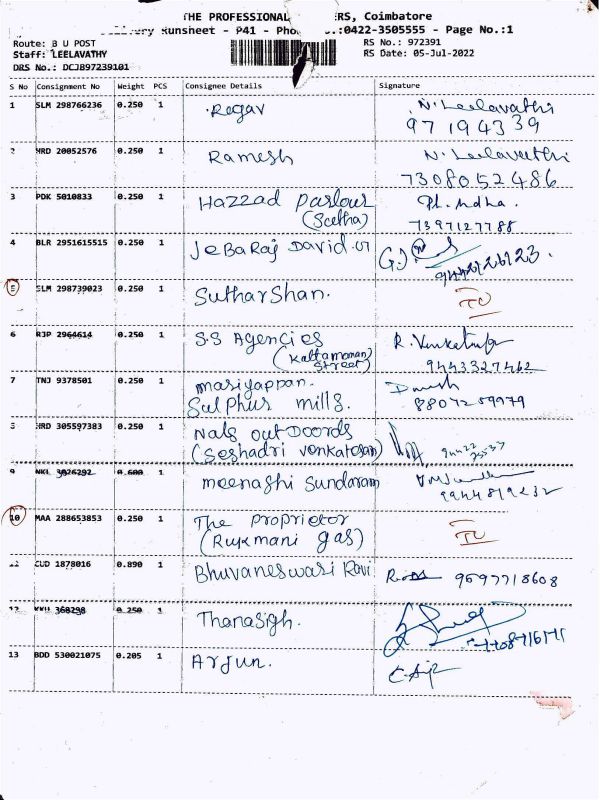 THE PROFESSIONAL ERS, Coimbatore
Runsheet - P41 - :0422-3505555 - Page No.:1
Route: B U POST
RS No.: 972391
Staff: LEELAVATHY
RS Date: 05-Jul-2022
DRS No.: DCJ897239101
S No Consignment No Weight PCS Consignee Details Signature
1 SLM 298766236 0.250 1 Ragav N. Leelavathi
97194339
2 HRD 20052576 0.250 1 Ramesh N. Leelavathi
7308052486
3 PDK 5010833 0.250 1 Hazzad Parlour
(Seetha) 7397127788
4 BLR 2951615515 0.250 1 Jebaraj David
5 SLM 298739023 0.250 1 Sutharshan.
6 RJP 2964614 0.250 1 S.S Agencies
(Kattamanan Street) 9443327462
7 TNJ 9378501 0.250 1 mariyappan.
Sulphur mills.
HRD 305597383 0.250 1 Nals OutDoords
(Seshadri venkatesan)
9 NKL 3026292 0.600 1 meenashi Sundaram
10 MAA 288653853 0.250 1 The proprietor
(Rukmani gas)
CUD 1878016 0.890 1 Bhuvaneswari Ravi 9597718608
0.250 1 Thanasigh.
13 BDD 530021075 0.205 1 Arjun.